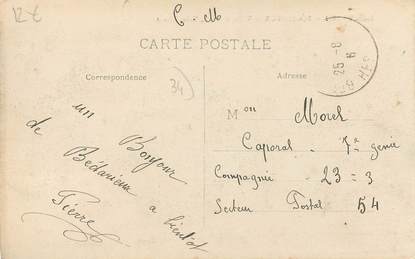 12€
C. M
CARTE POSTALE
Correspondance
Adresse
34
25-8
un Bonjour
de Bédarieux
a bientot
Pierre
Mon Morel
Caporal 7e genie
Compagnie 23=3
Secteur Postal 54